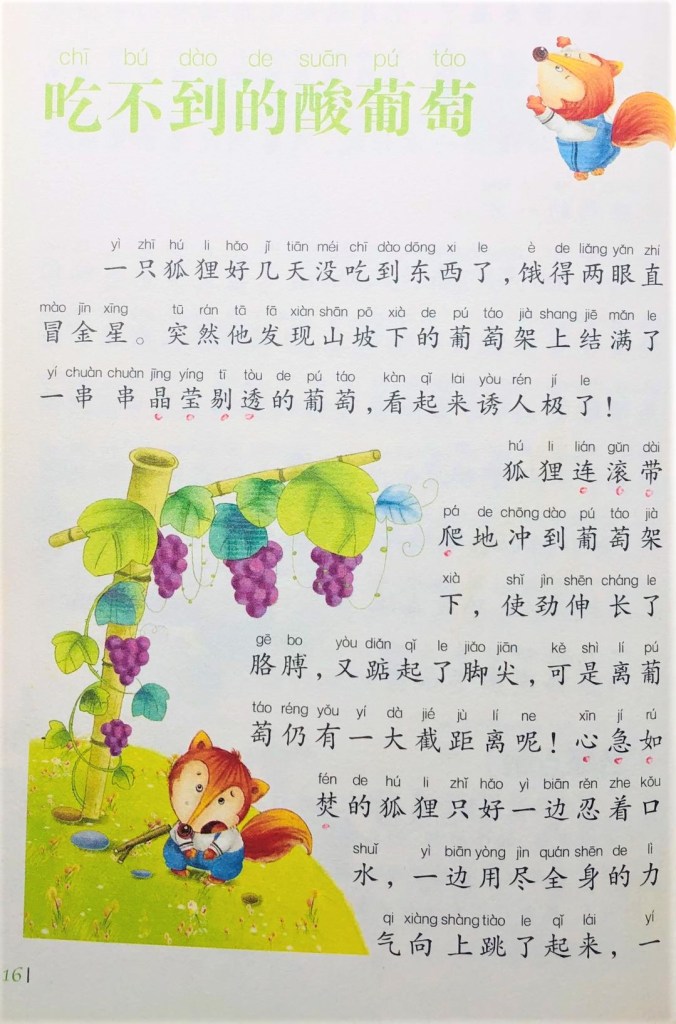 chī bú dào de suān pú táo
吃不到的酸葡萄
yì zhī hú li hǎo jǐ tiān méi chī dào dōng xi le è de liǎng yǎn zhí
一只狐狸好几天没吃到东西了，饿得两眼直
mào jīn xīng tū rán tā fā xiàn shān pō xià de pú táo jià shang jiē mǎn le
冒金星。突然他发现山坡下的葡萄架上结满了
yí chuàn chuàn jīng yíng tī tòu de pú táo kàn qǐ lai yòu rén jí le
一串串晶莹剔透的葡萄，看起来诱人极了！
hú li lián gǔn dài
狐狸连滚带
pá de chōng dào pú táo jià
爬地冲到葡萄架
xià shǐ jìn shēn cháng le
下，使劲伸长了
gē bo yòu diǎn qǐ le jiǎo jiān kě shì lí pú
胳膊，又踮起了脚尖，可是离葡
táo réng yǒu yí dà jié jù lí ne xīn jí rú
萄仍有一大截距离呢！心急如
fén de hú li zhǐ hǎo yì biān rěn zhe kǒu
焚的狐狸只好一边忍着口
shuǐ yì biān yòng jìn quán shēn de lì
水，一边用尽全身的力
qi xiàng shàng tiào le qǐ lái yí
气向上跳了起来，一
16